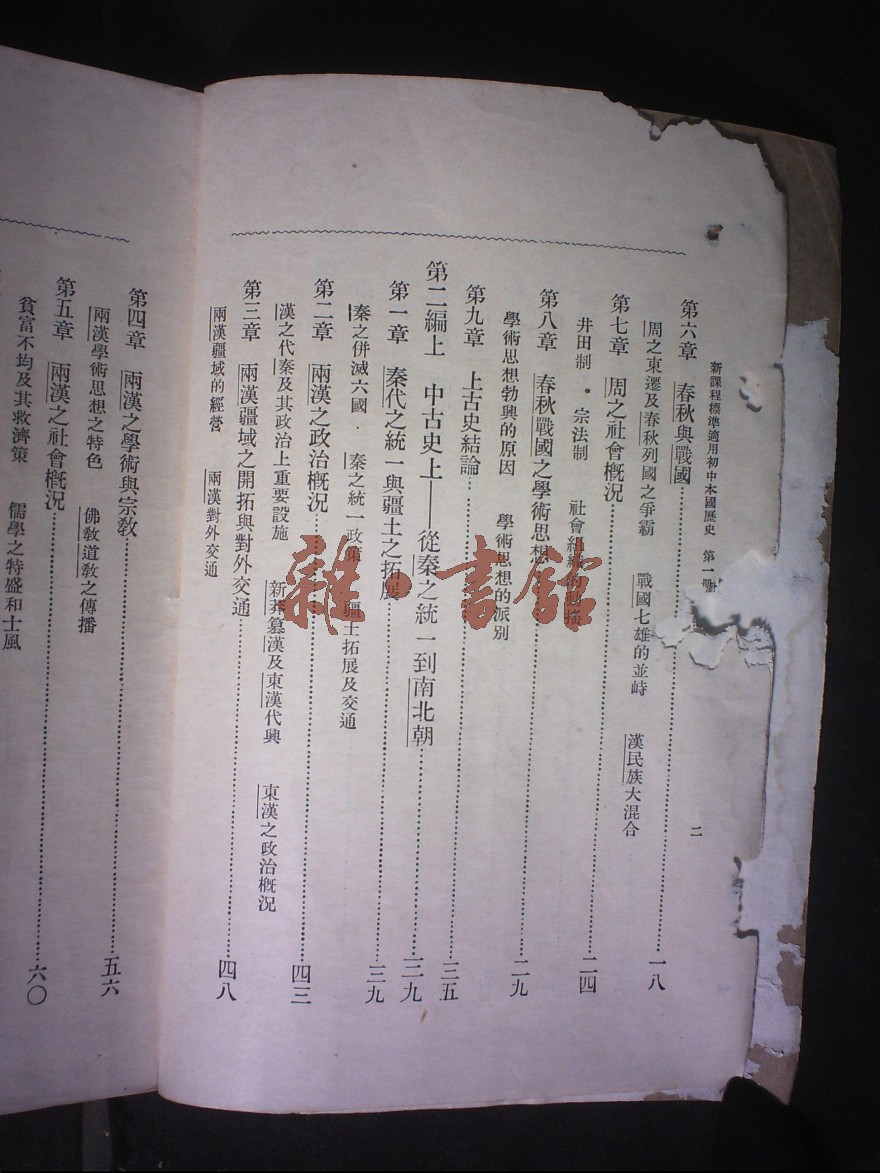 新課程標準適用初中本國歷史　第一册
二
第六章　春秋與戰國……一八
周之東遷及春秋列國之爭霸　戰國七雄的並峙　漢民族大混合
第七章　周之社會概況……二四
井田制　宗法制　社會組織的
第八章　春秋戰國之學術思想……二九
學術思想勃興的原因　學術思想的派別
第九章　上古史結論……三五
第二編上　中古史上——從秦之統一到南北朝……三九
第一章　秦代之統一與疆土之拓展……三九
秦之併滅六國　秦之統一政策　疆土拓展及交通
第二章　兩漢之政治概況……四三
漢之代秦及其政治上重要設施　新莽篡漢及東漢代興　東漢之政治概況
第三章　兩漢疆域之開拓與對外交通……四八
兩漢疆域的經營　兩漢對外交通
第四章　兩漢之學術與宗教……五六
兩漢學術思想之特色　佛教道教之傳播
第五章　兩漢之社會概況……六〇
貧富不均及其救濟策　儒學之特盛和士風
雜·書館